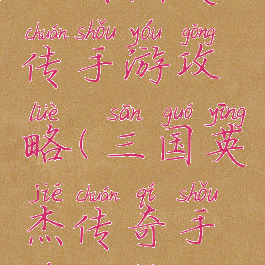 chuán shǒu yóu gōng
传手游攻
lüè sān guó yīng
略(三国英
jié chuán qí shǒu
杰传奇手